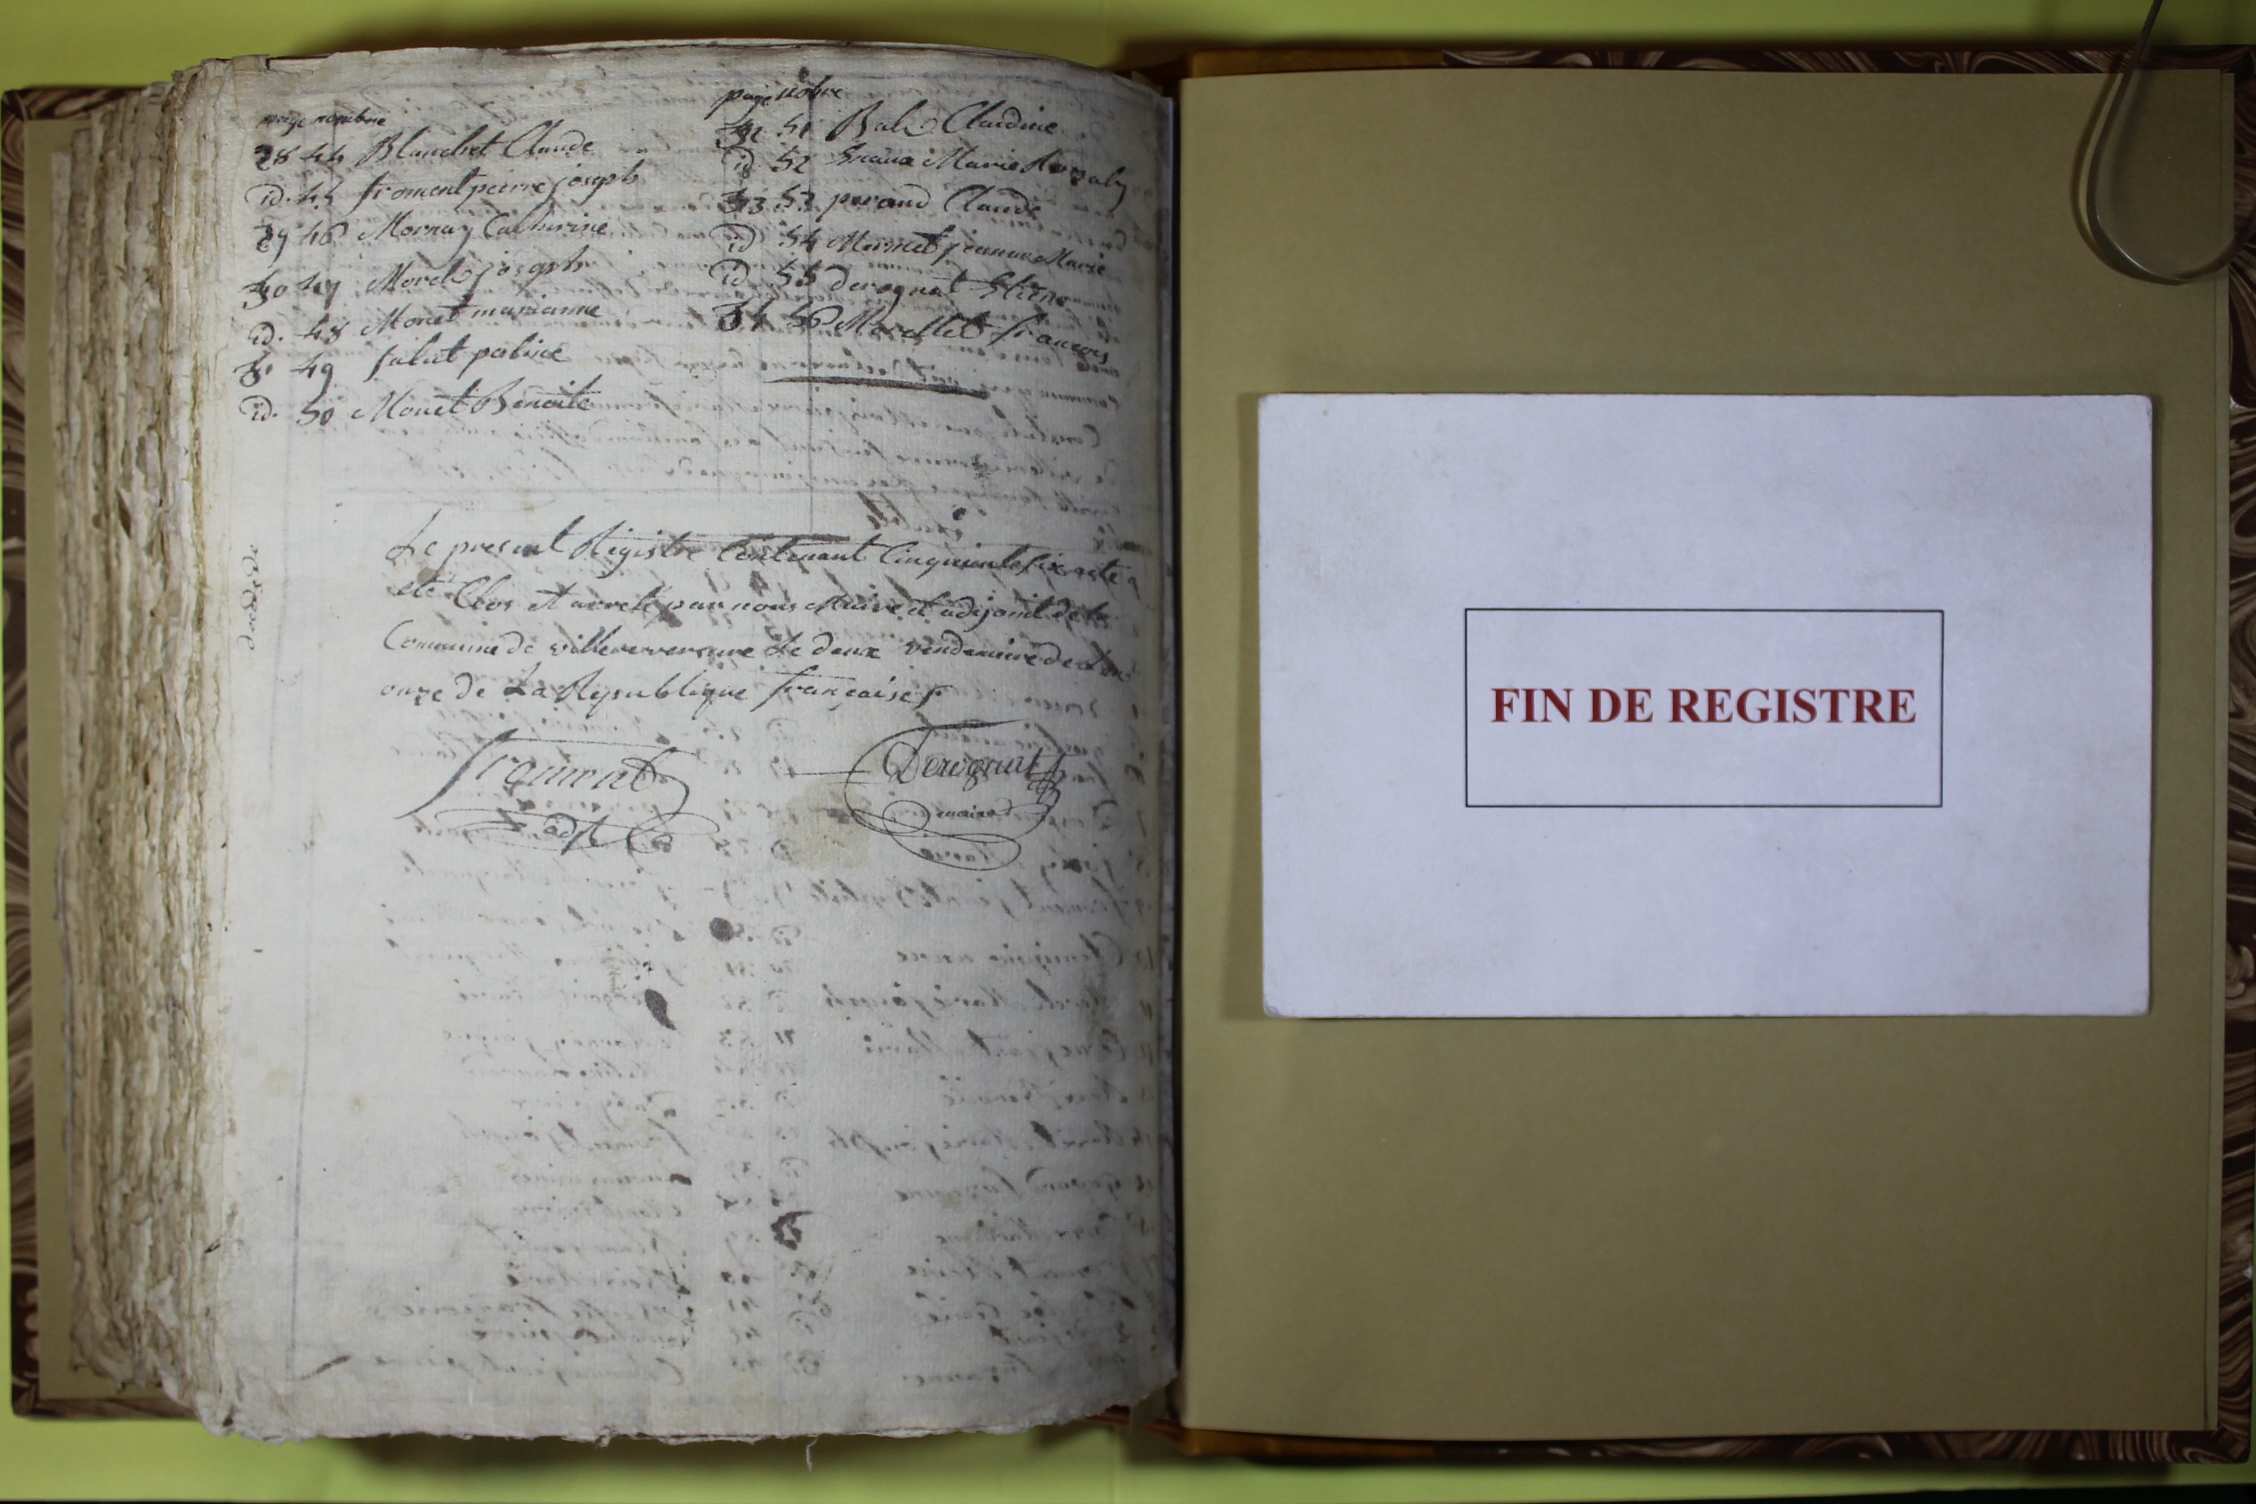 page nombre
28 44 Blanchet Claude
id. 45 froment pierre joseph
29 46 Mornay Catherine
30 47 Morel joseph
id. 48 Monet marianne
31 49
id. 50 Monet Benoite
page nobre
32 51 Claudine
id 52 Marie
33 53 perand Claude
id 54 jeanne Marie
id. 55 derognat Etiene
34 56 Morellet francois
Le present Registre Contenant Cinquante six acte a
ete Clos et arreté par nous Maire et adijoint de la
Commune de villereversure Le deux vendemiere de L'an
onze de La Republique francaise
froment
adjt
Derognat
maire
FIN DE REGISTRE